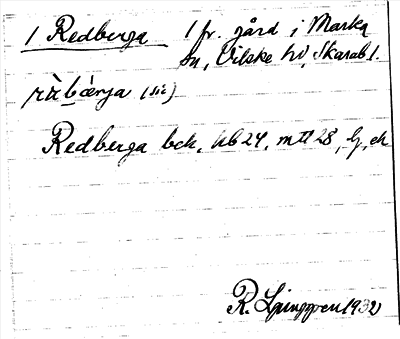 1 Redberga 1 fr. gård i Marka
sn, Vilske hd, Skarab l.
rὰbæ̀rja (sic)
Redberga bck, hb 24, mtl 28, lj, ck
R. Ljunggren 1932